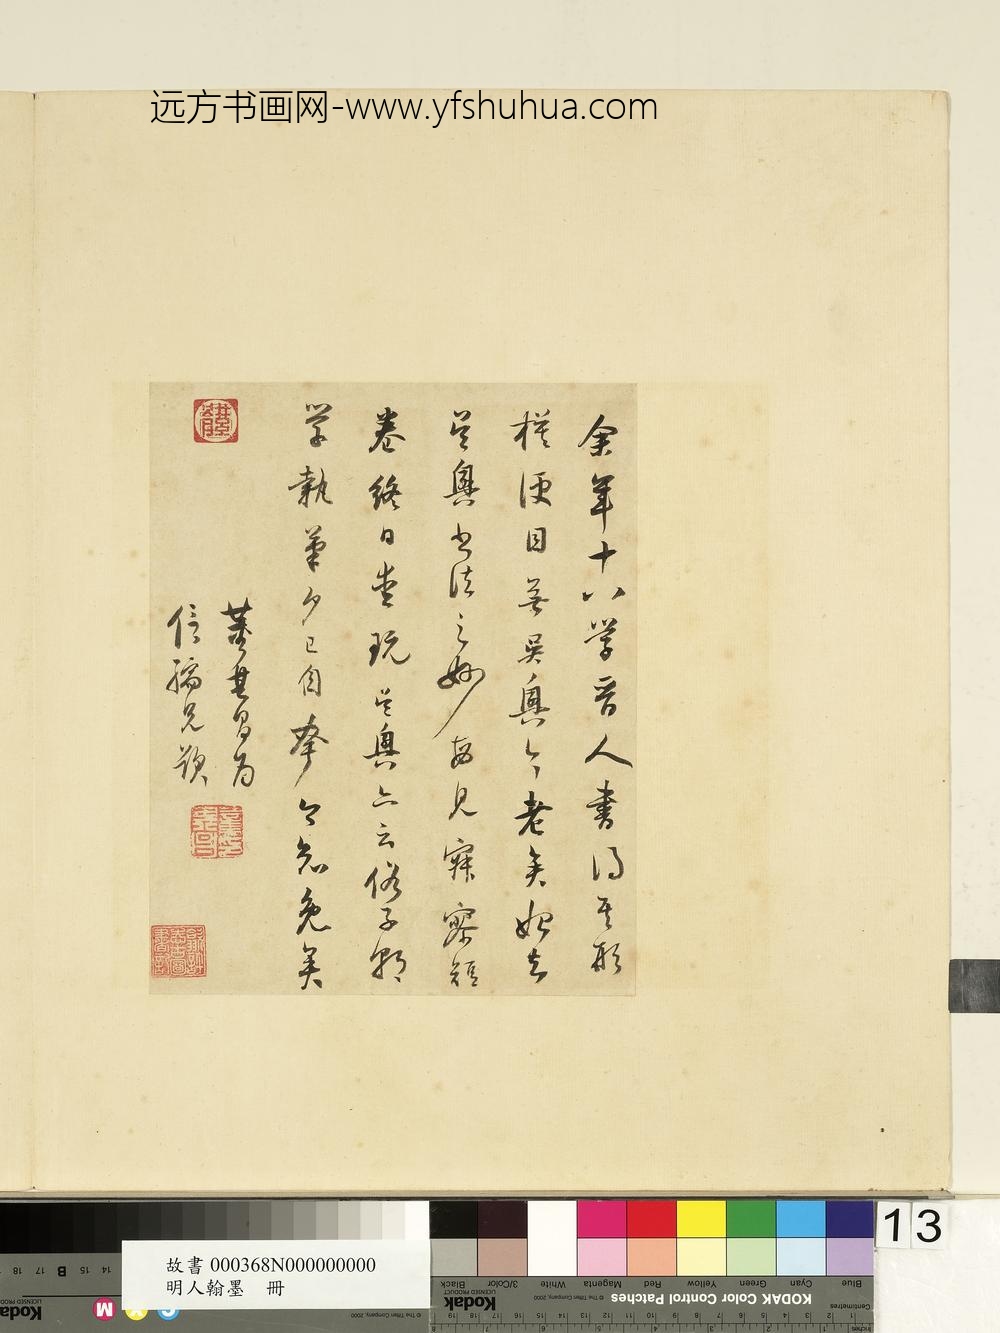 远方书画网-www.yfshuhua.com
余年十八學晉人書得其形
模便目無吳興今老矣始知
吳興書法之妙每見寂寥短
卷終日愛玩吳興亦云俗子朝
學執筆夕已自夸今知免矣
董其昌為
信孺兄題
故書 000368N000000000
明人翰墨 冊
13
KODAK Color Control Patches
© The Tiffen Company, 2000
Kodak
LICENSED PRODUCT
Blue Cyan Green Yellow Red Magenta White 3/Color Black
Centimetres
Inches
B
M
Y
C